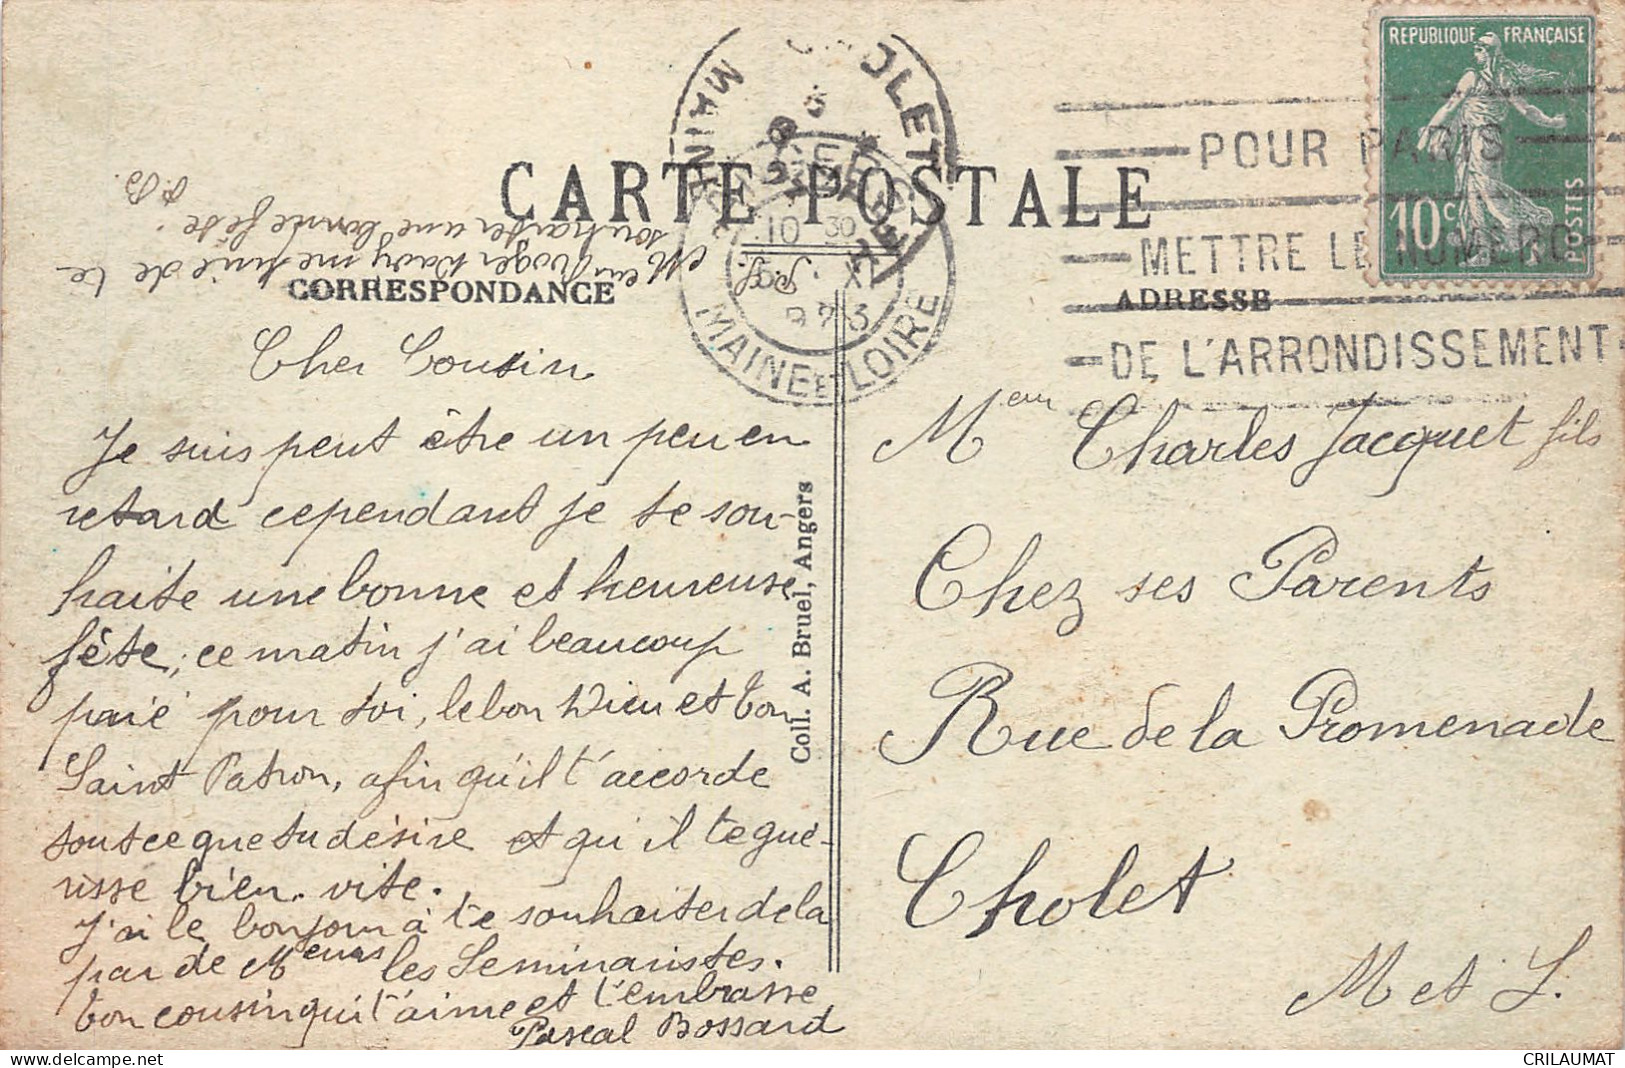 REPUBLIQUE FRANÇAISE
10c
POSTES
POUR PARIS
METTRE LE NUMERO
DE L'ARRONDISSEMENT
CHOLET
MAINE
10 30
MAINE ET LOIRE
CARTE POSTALE
CORRESPONDANCE
ADRESSE
Meur Roger Davy me prie de te
souhaiter une bonne fête
P.B.
P.S.
Cher Cousin
Je suis peut être un peu en
retard cependant je te sou-
haite une bonne et heureuse
fête, ce matin j'ai beaucoup
prié pour toi, le bon Dieu et ton
Saint Patron, afin qu'il t'accorde
tout ce que tu désire et qu'il te gué-
risse bien vite.
J'ai le bonjour à te souhaiter de la
par de Meurs les Seminaristes.
ton cousin qui t'aime et t'embrasse
Pascal Bossard
Coll. A. Bruel, Angers
Meur Charles Jacquet fils
Chez ses Parents
Rue de la Promenade
Cholet
M et L.
CRILAUMAT